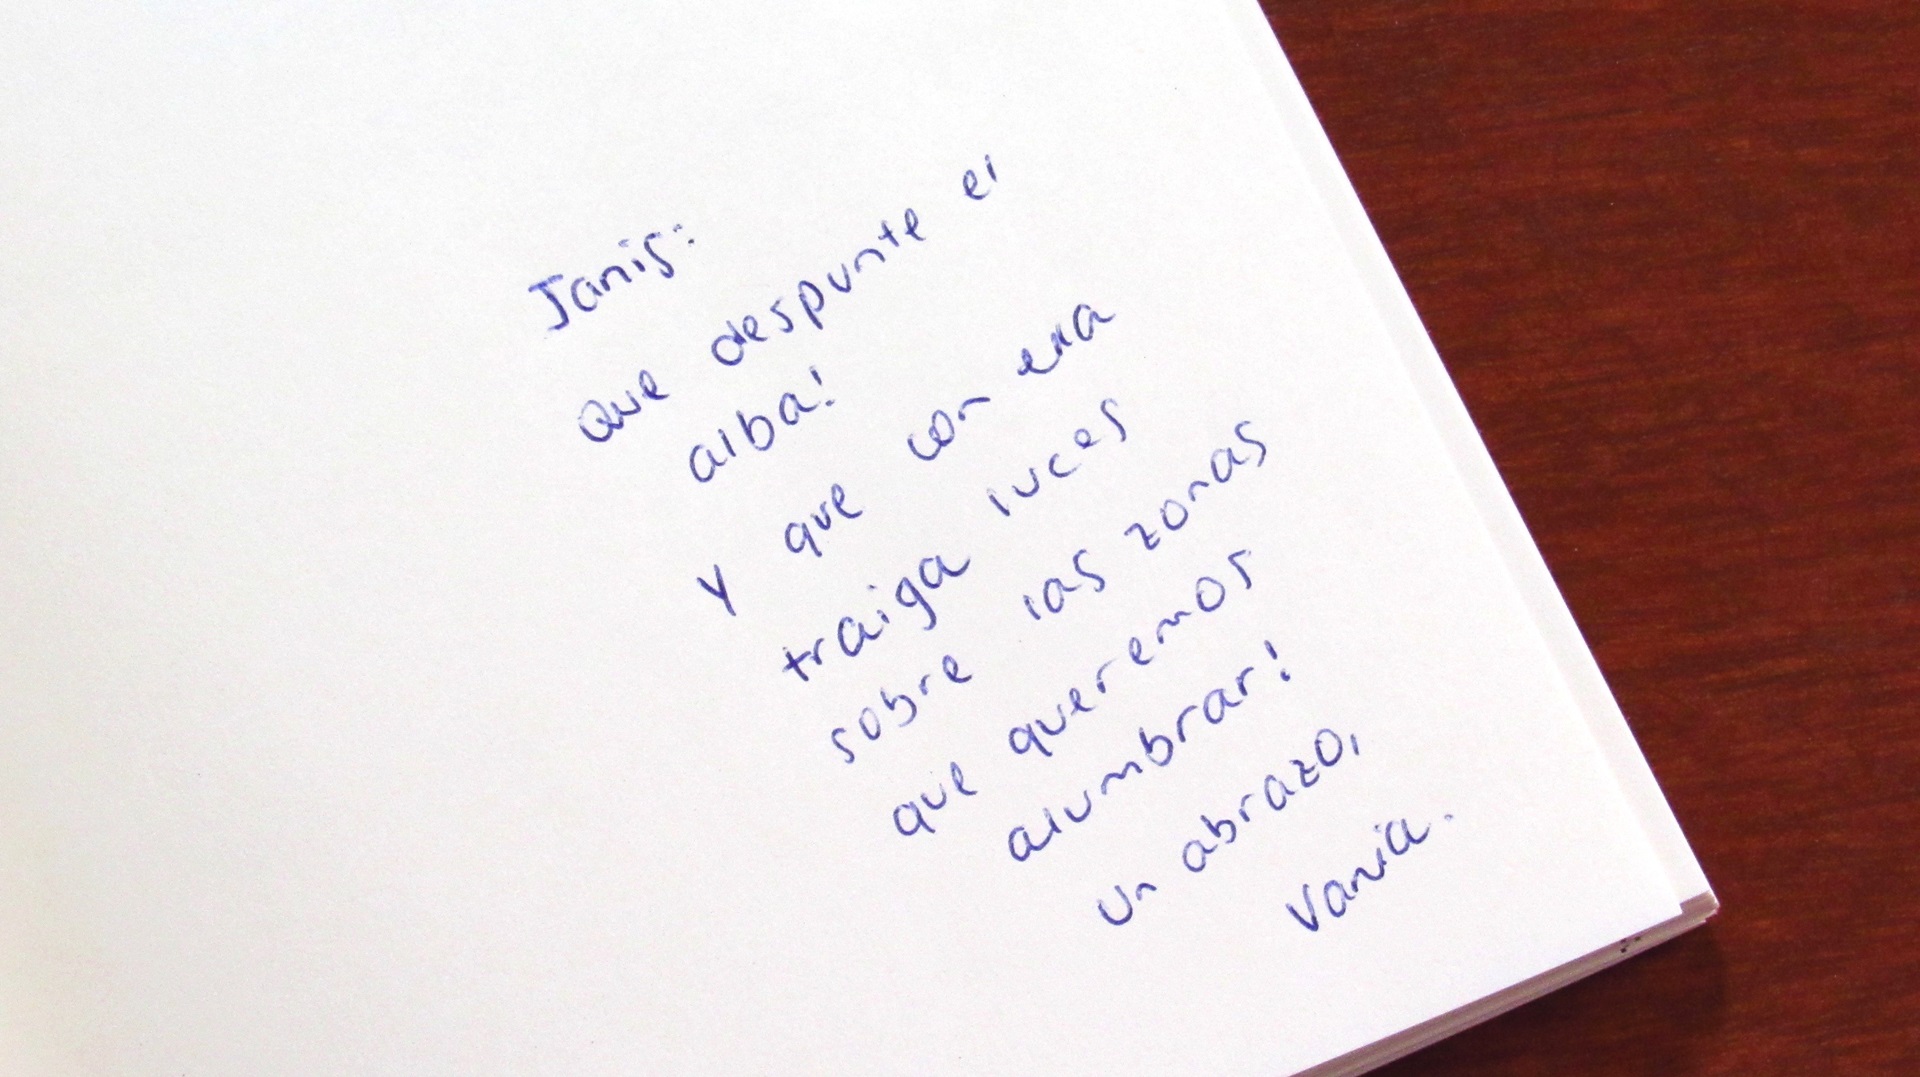 Janis:
Que despunte el
alba!
Y que con ella
traiga luces
sobre las zonas
que queremos
alumbrar!
Un abrazo,
Vania.